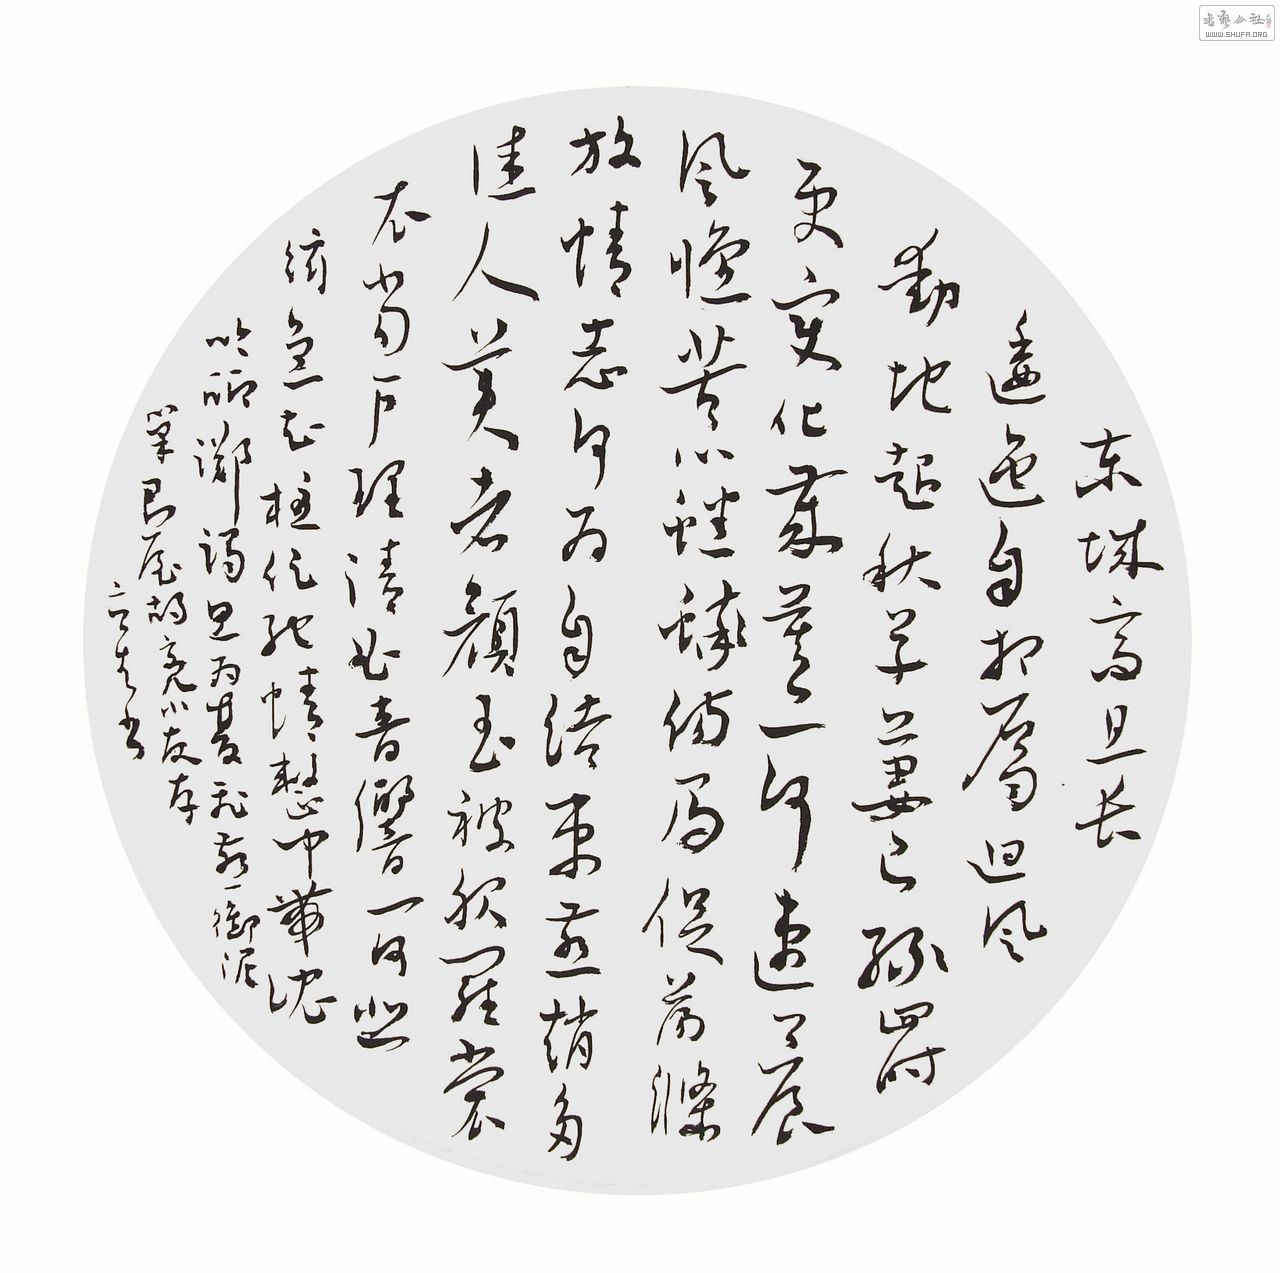 东城高且长
逶迤自相属迴风
動地起秋草萋已绿四时
更变化歲暮一何速晨
风懷苦心蟋蟀傷局促蕩滌
放情志何为自结束燕趙多
佳人美者颜玉被服罗裳
衣当户理清曲音響一何悲
弦急知柱促驰情整中带沈
吟聊躑躅思为双飛燕銜泥
巢君屋胡亮小友存
书
书艺公社
WWW.SHUFA.ORG